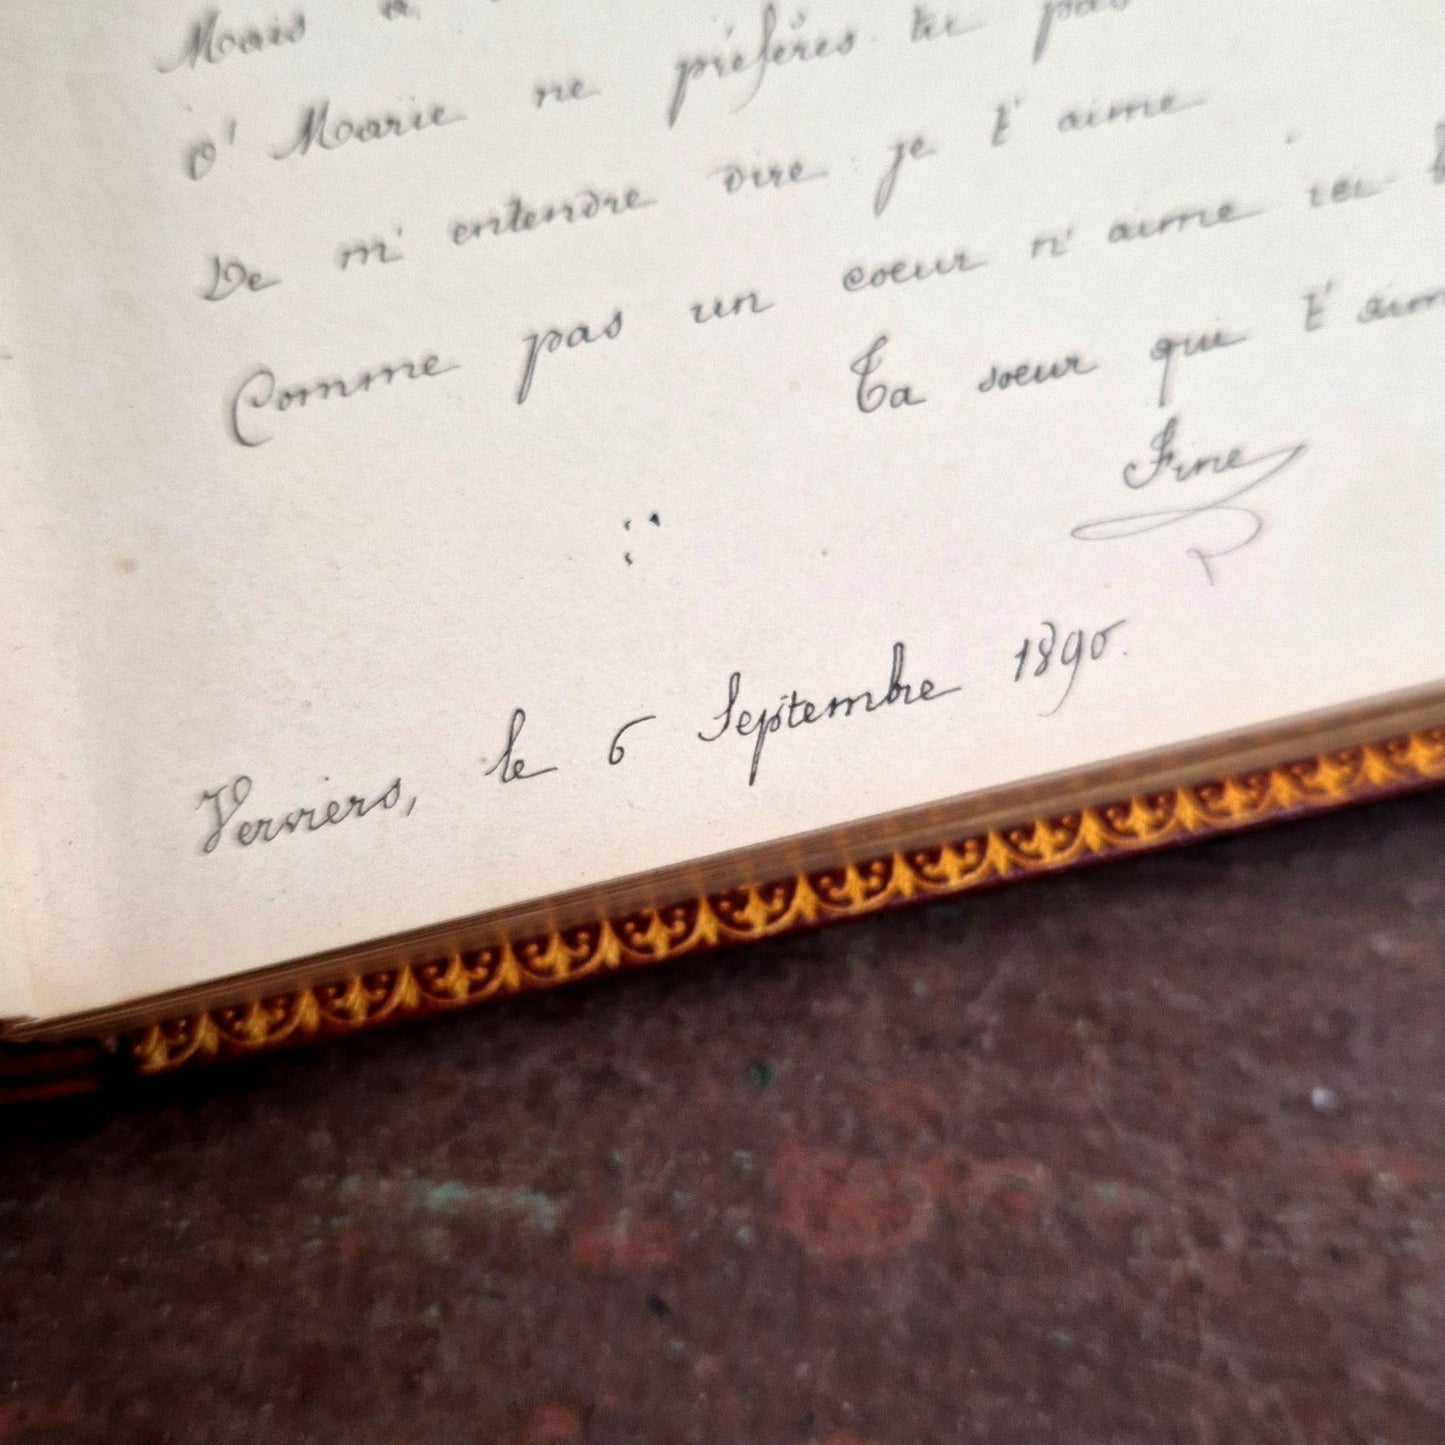 Mais à
O' Marie ne préfères-tu pas
De m'entendre dire je t'aime
Comme pas un coeur n'aime ici
Ta soeur qui t'aim
Fine
Verviers, le 6 Septembre 1890.